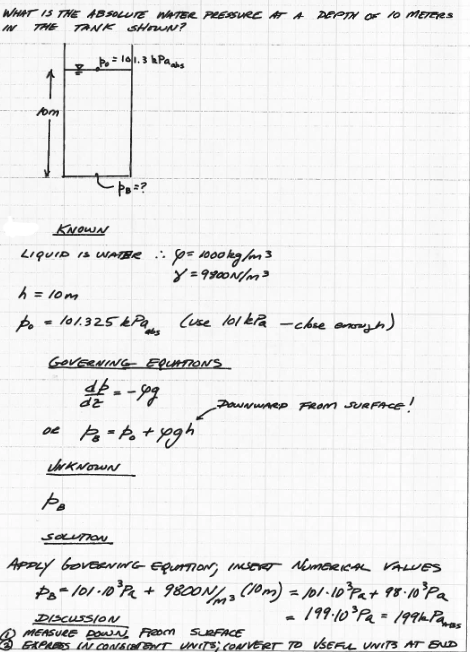 WHAT IS THE ABSOLUTE WATER PRESSURE AT A DEPTH OF 10 METERS
IN THE TANK SHOWN?
p₀ = 101.3 kPa abs
10m
p_B = ?
KNOWN
LIQUID IS WATER ∴ ρ = 1000 kg/m³
γ = 9800 N/m³
h = 10m
p₀ = 101.325 kPa abs (use 101 kPa — close enough)
GOVERNING EQUATIONS
dp/dz = -ρg
DOWNWARD FROM SURFACE!
or p_B = p₀ + ρgh
UNKNOWN
p_B
SOLUTION
APPLY GOVERNING EQUATION, INSERT NUMERICAL VALUES
p_B = 101·10³Pa + 9800 N/m³ (10m) = 101·10³Pa + 98·10³Pa
= 199·10³Pa = 199 kPa abs
DISCUSSION
① MEASURE DOWN FROM SURFACE
② EXPRESS IN CONSISTENT UNITS; CONVERT TO USEFUL UNITS AT END